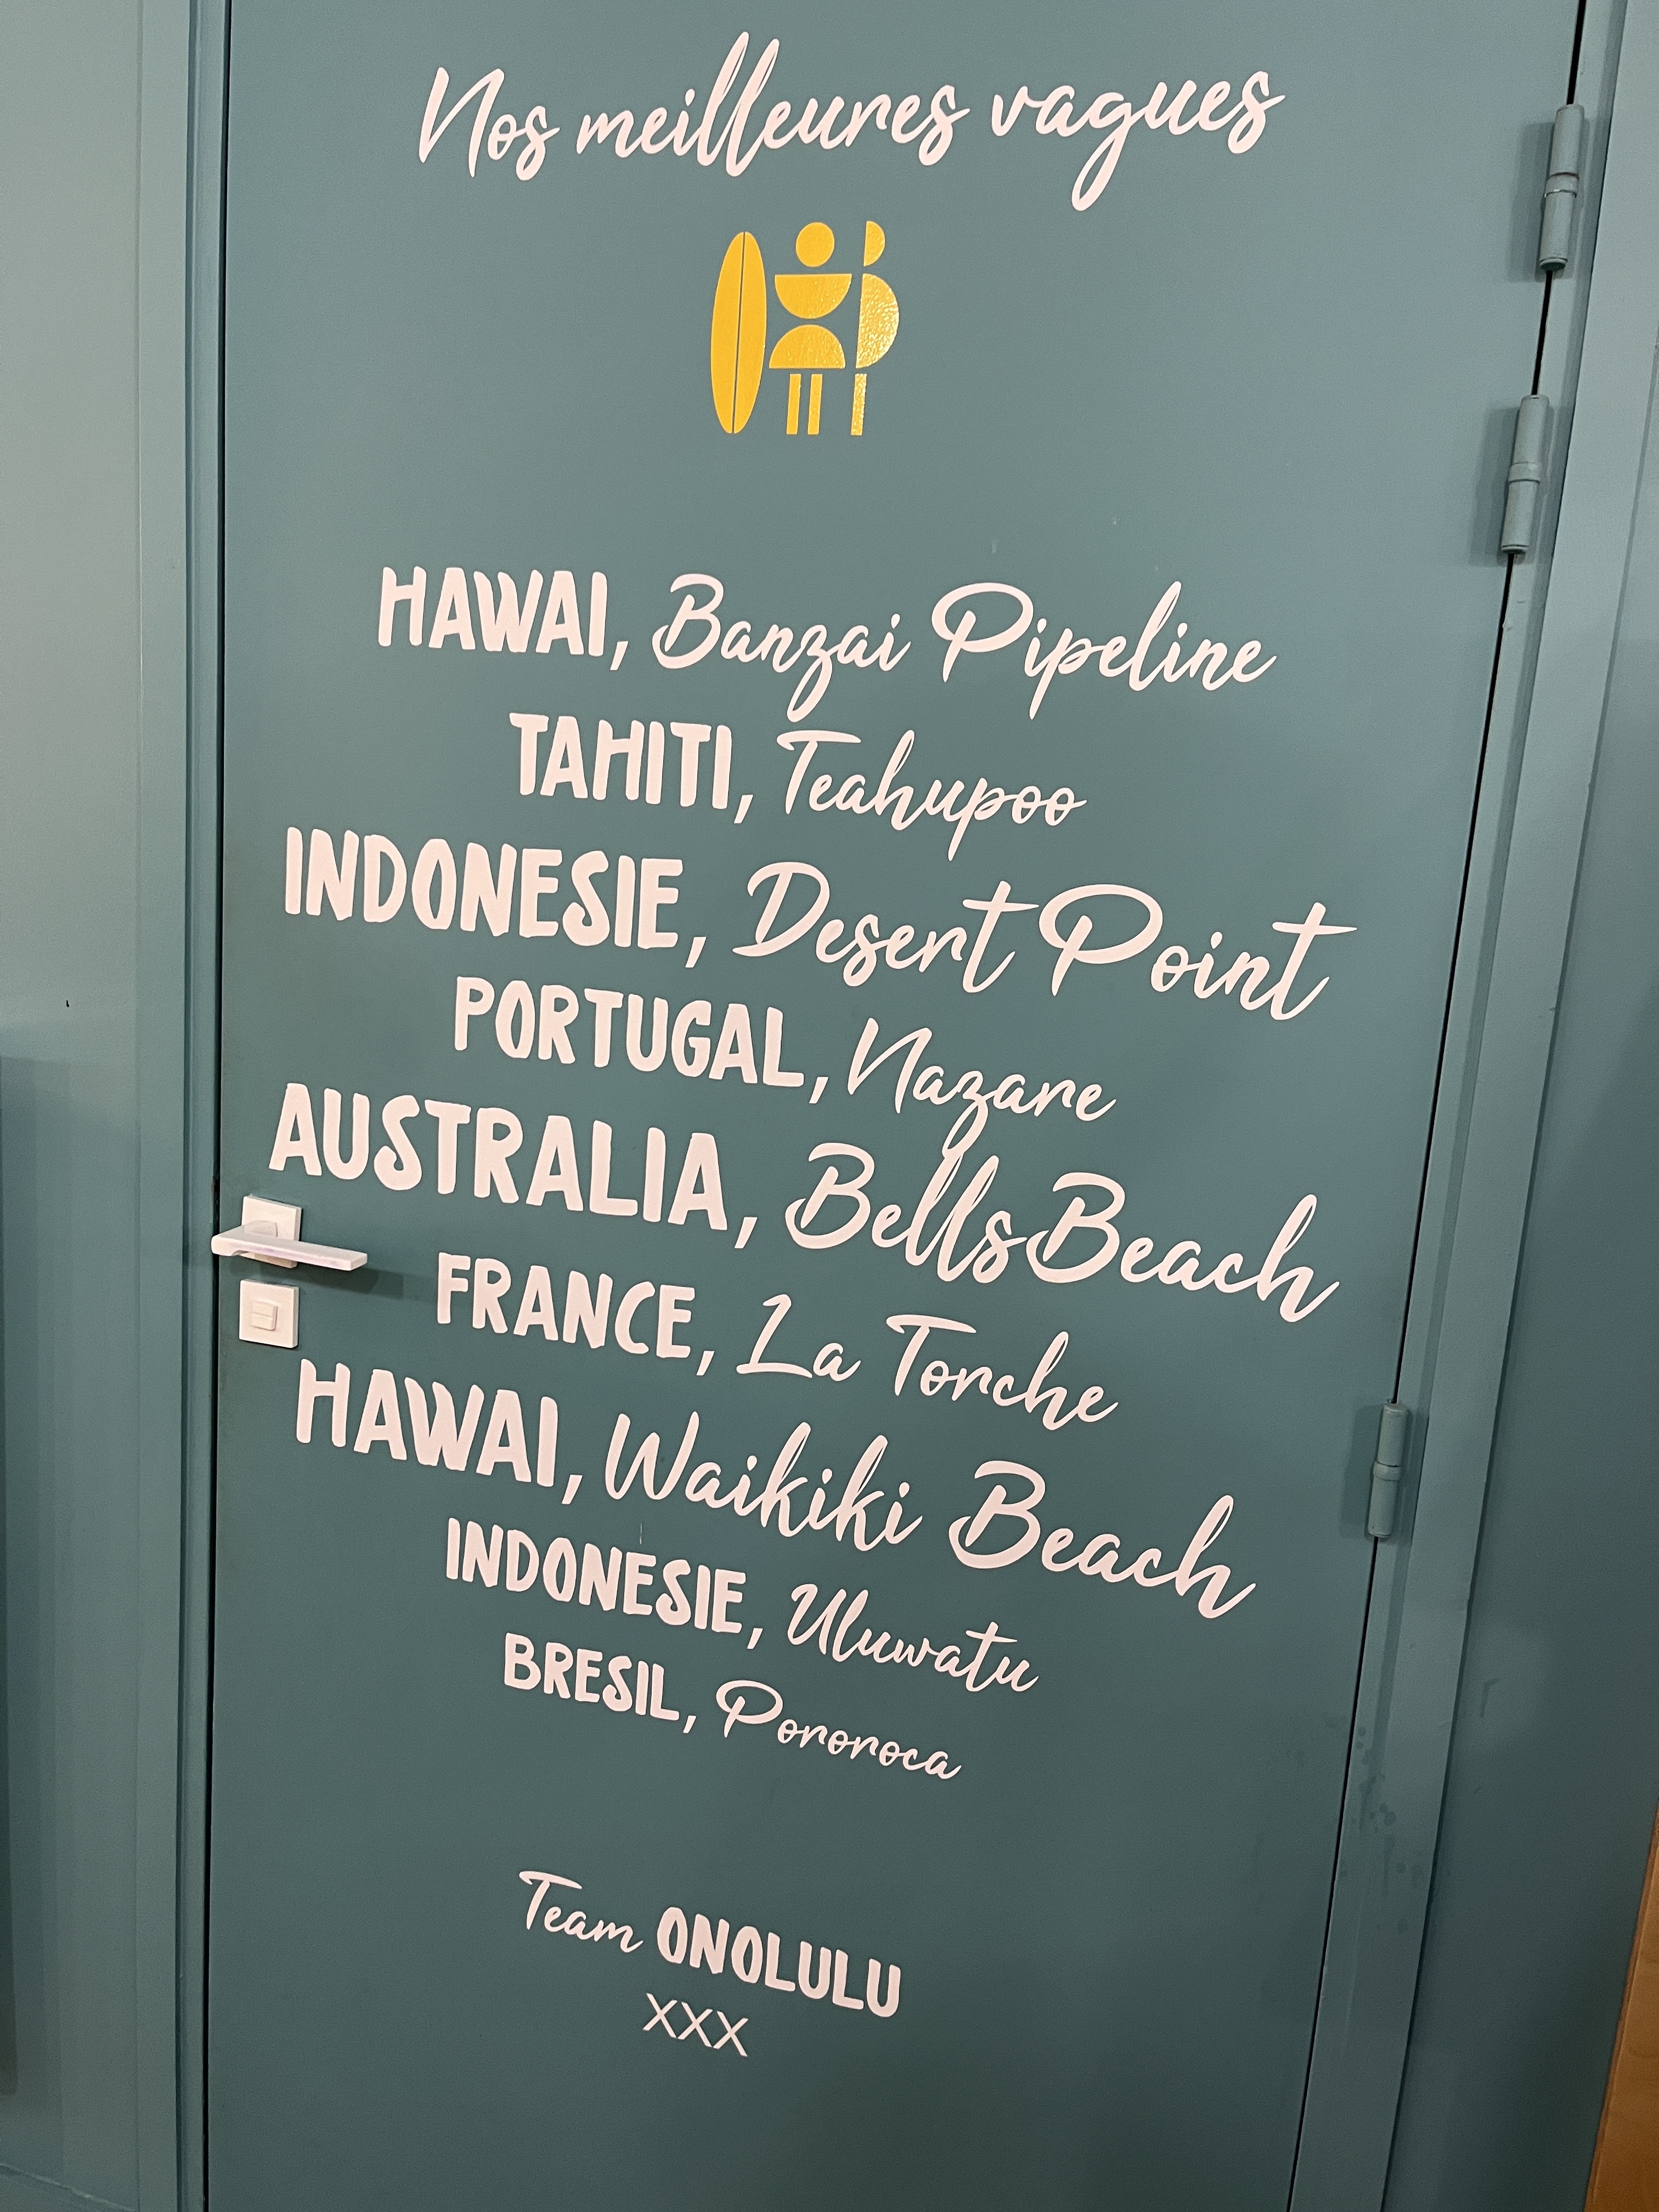 Nos meilleures vagues
HAWAI, Banzai Pipeline
TAHITI, Teahupoo
INDONESIE, Desert Point
PORTUGAL, Nazare
AUSTRALIA, Bells Beach
FRANCE, La Torche
HAWAI, Waikiki Beach
INDONESIE, Uluwatu
BRESIL, Pororoca
Team ONOLULU
XXX